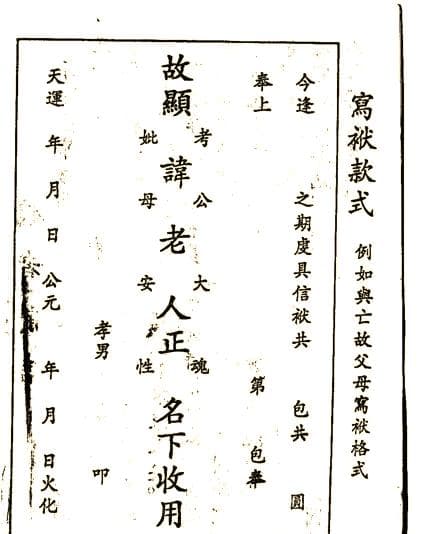 寫袱款式 例如與亡故父母寫袱格式
今逢 之期虔具信袱共 包共 圓
奉上 第 包奉
考公大魂
故顯 諱老人正 名下收用
妣母安性
孝男 叩
天運 年月日 公元 年月日火化